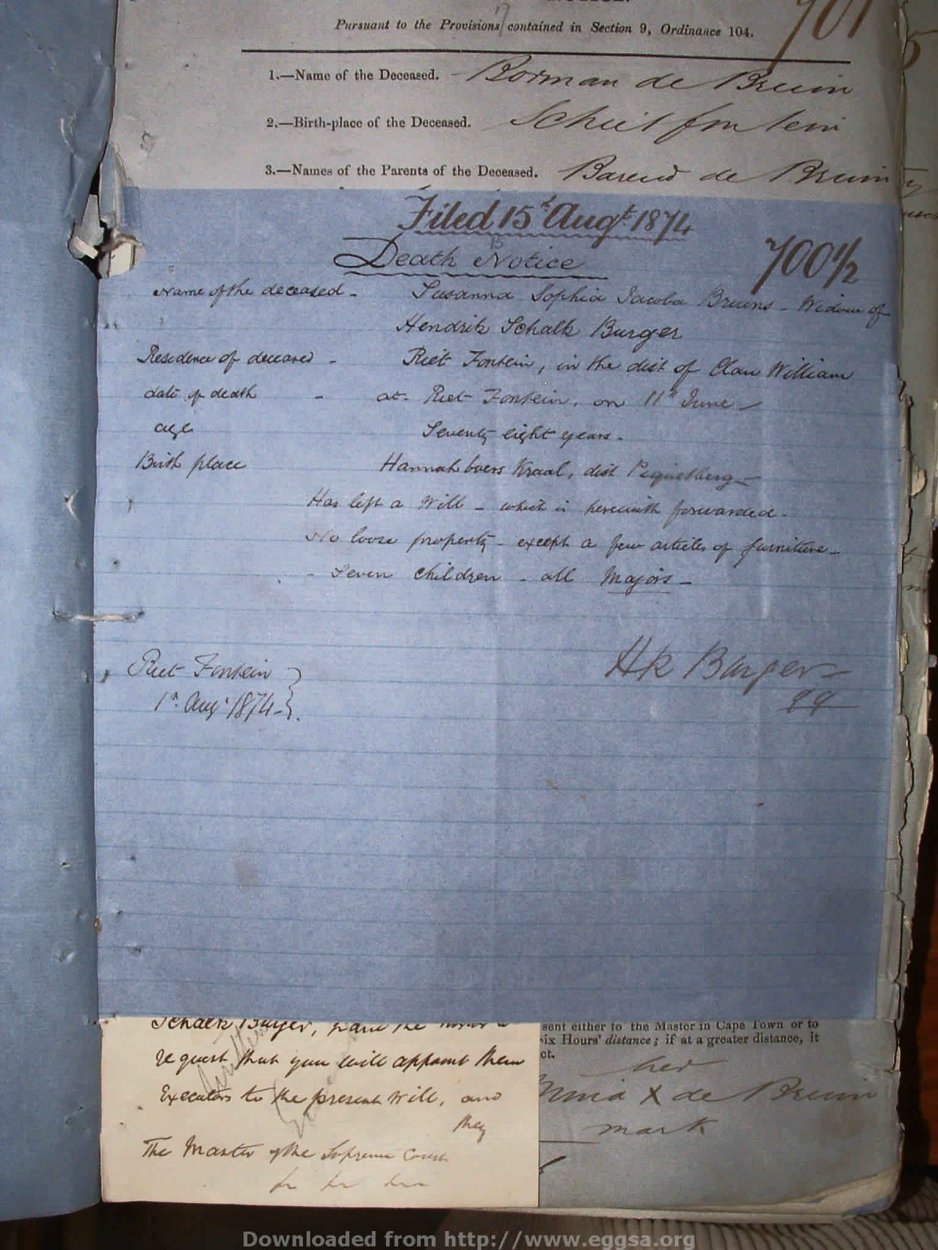 Pursuant to the Provisions contained in Section 9, Ordinance 104.
701
1.—Name of the Deceased. Borman de Bruin
2.—Birth-place of the Deceased. Schuitfontein
3.—Names of the Parents of the Deceased. Barend de Bruin
Filed 15th Augt 1874
Death Notice
700½
Name of the deceased - Susanna Sophia Jacoba Bruins - Widow of
Hendrik Schalk Burger
Residence of deceased - Riet Fontein, in the dist of Clan William
date of death - at Riet Fontein, on 11th June -
age Seventy eight years -
Birth place Hannah boers Kraal, dist Piquetberg -
Has left a Will - which is herewith forwarded -
No loose property - except a few articles of furniture -
- Seven children - all Majors -
Riet Fontein
1st Aug 1874
HR Burger
qq
Schalk Burger, have the
request that you will appoint them
Executors to the present will, and
they
The Master of the Supreme Court
sent either to the Master in Cape Town or to
six Hours' distance; if at a greater distance, it
ct.
her
X de Bruin
mark
Downloaded from http://www.eggsa.org